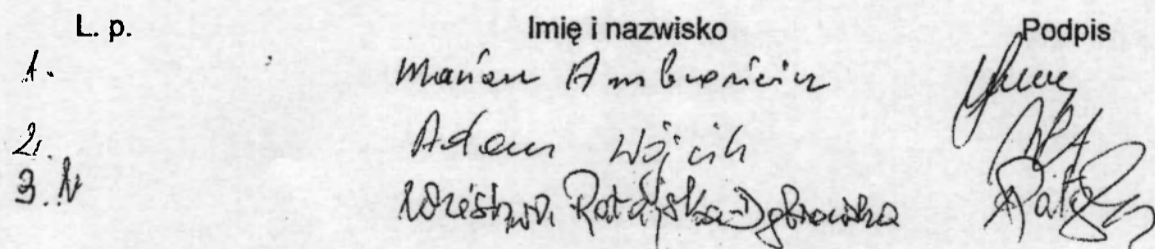 L. p. Imię i nazwisko Podpis
1. Marian Ambroziewicz
2. Adam Wójcik
3. Ratajska-Dąbrowska